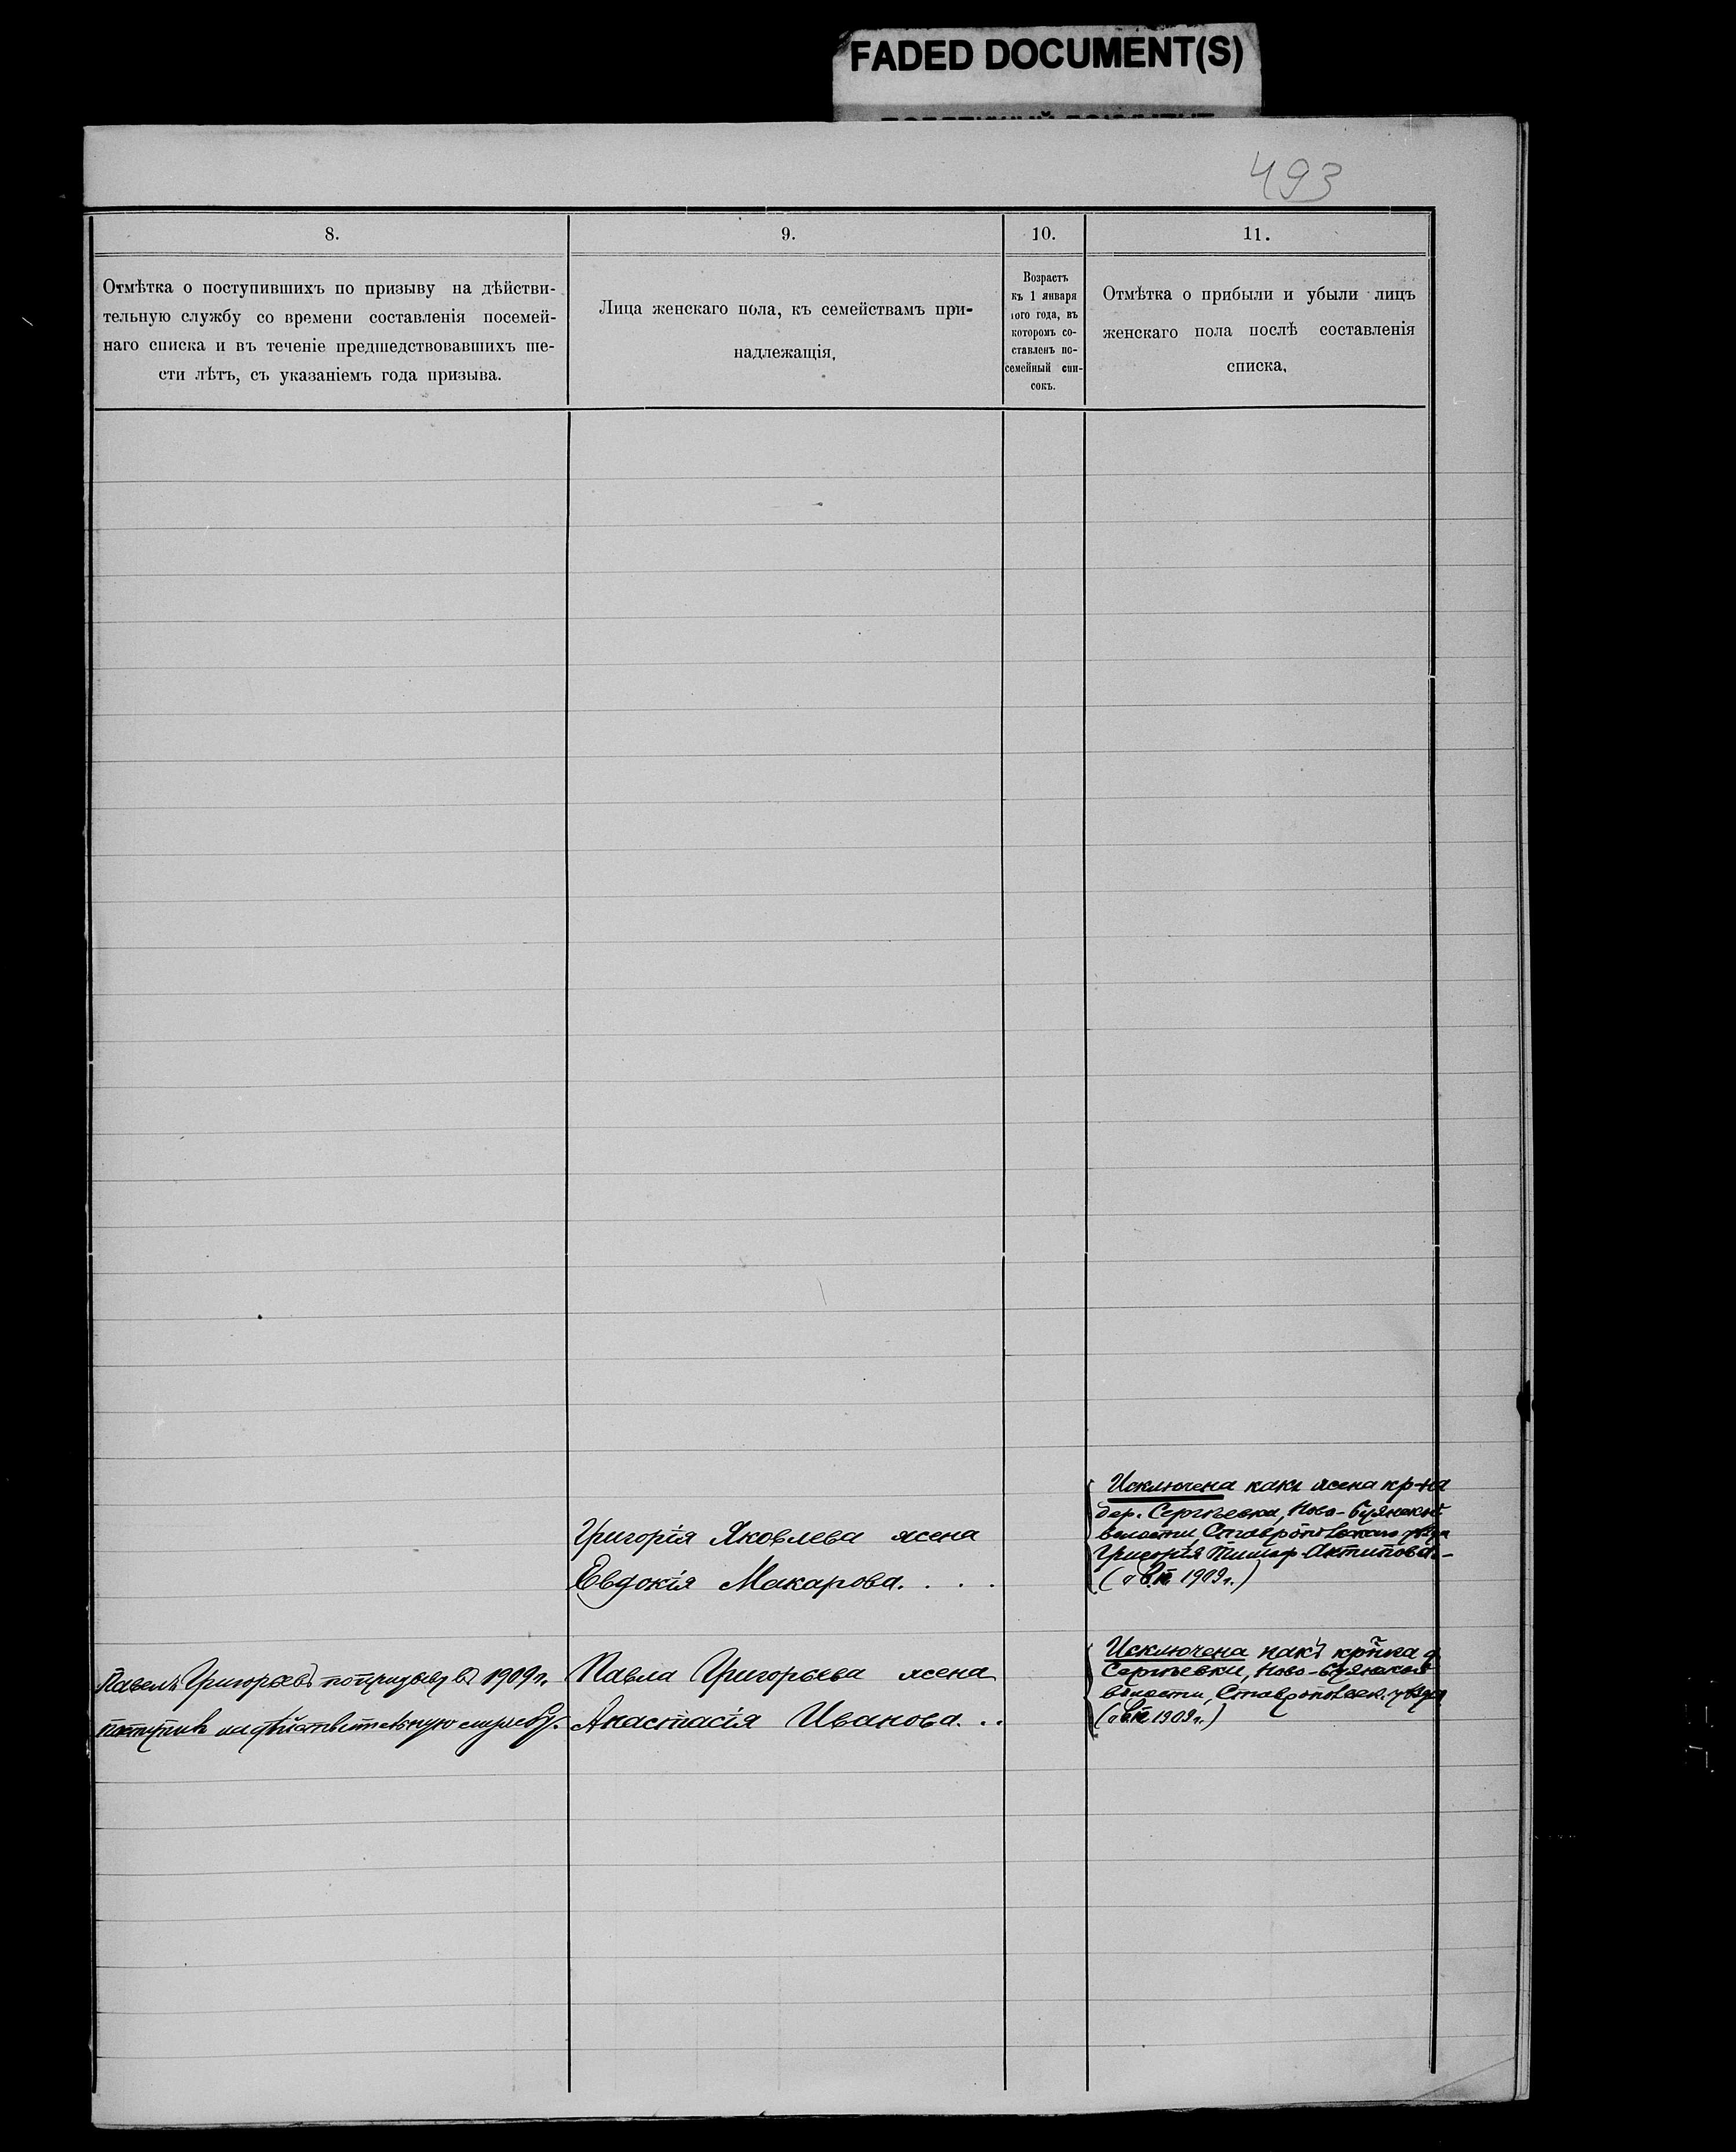 FADED DOCUMENT(S)
493
8.
9.
10.
11.
Отмѣтка о поступившихъ по призыву на дѣйстви-
тельную службу со времени составленія посемей-
наго списка и въ теченіе предшедствовавшихъ ше-
сти лѣтъ, съ указаніемъ года призыва.
Лица женскаго пола, къ семействамъ при-
надлежащія,
Возрастъ
къ 1 января
того года, въ
которомъ со-
ставленъ по-
семейный спи-
сокъ.
Отмѣтка о прибыли и убыли лицъ
женскаго пола послѣ составленія
списка,
Григорія Яковлева жена
Евдокія Макарова. . . .
Исключена какъ жена кр-на
дер. Сергѣевки, Ново-Буянской
волости, Ставропольскаго уѣзда
Григорія Антипова-
1909 г.)
Павелъ Григорьевъ по призыву въ 1909 г.
поступилъ на дѣйствительную службу.
Павла Григорьева жена
Анастасія Иванова. . .
Исключена какъ д.
Сергѣевки, Ново-Буянской
волости, Ставропольск. уѣзда
1909 г.)